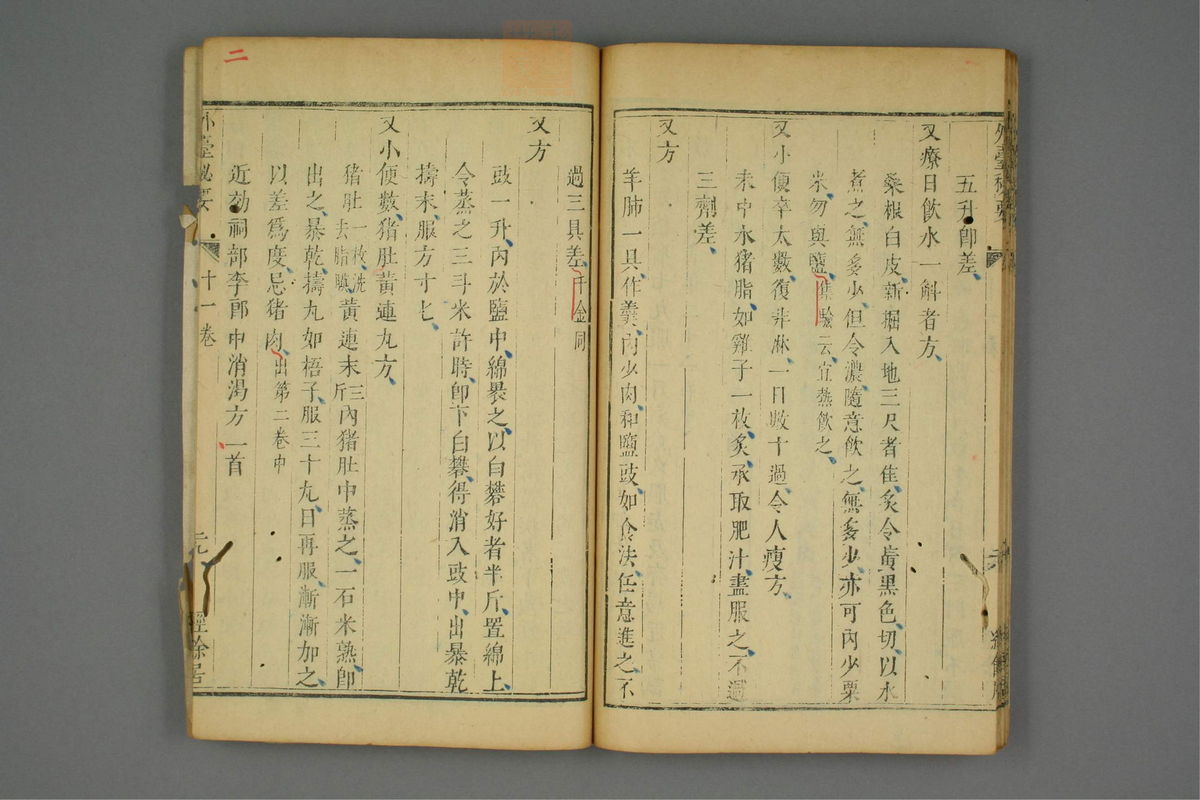 五升卽差
又療日飲水一斛者方
桑根白皮新掘入地三尺者佳炙令黃黑色切以水
煮之無多少但令濃隨意飲之無多少亦可內少粟
米勿與鹽集驗云宜熱飲之
又小便卒太數復非淋一日數十過令人瘦方
未中水猪脂如雞子一枚炙承取肥汁盡服之不過
三劑差
又方
羊肺一具作羹內少肉和鹽豉如食法任意進之不
過三具差千金同
又方
豉一升內於鹽中綿褁之以白礬好者半斤置綿上
令蒸之三斗米許時卽下白礬得消入豉中出暴乾
擣末服方寸匕
又小便數猪肚黃連丸方
猪肚一枚洗去脂膜黃連末三斤內猪肚中蒸之一石米熟卽
出之暴乾擣丸如梧子服三十丸日再服漸漸加之
以差爲度忌猪肉出第二卷中
近効祠部李郎中消渴方一首
外臺秘要
十一卷
經餘居
二